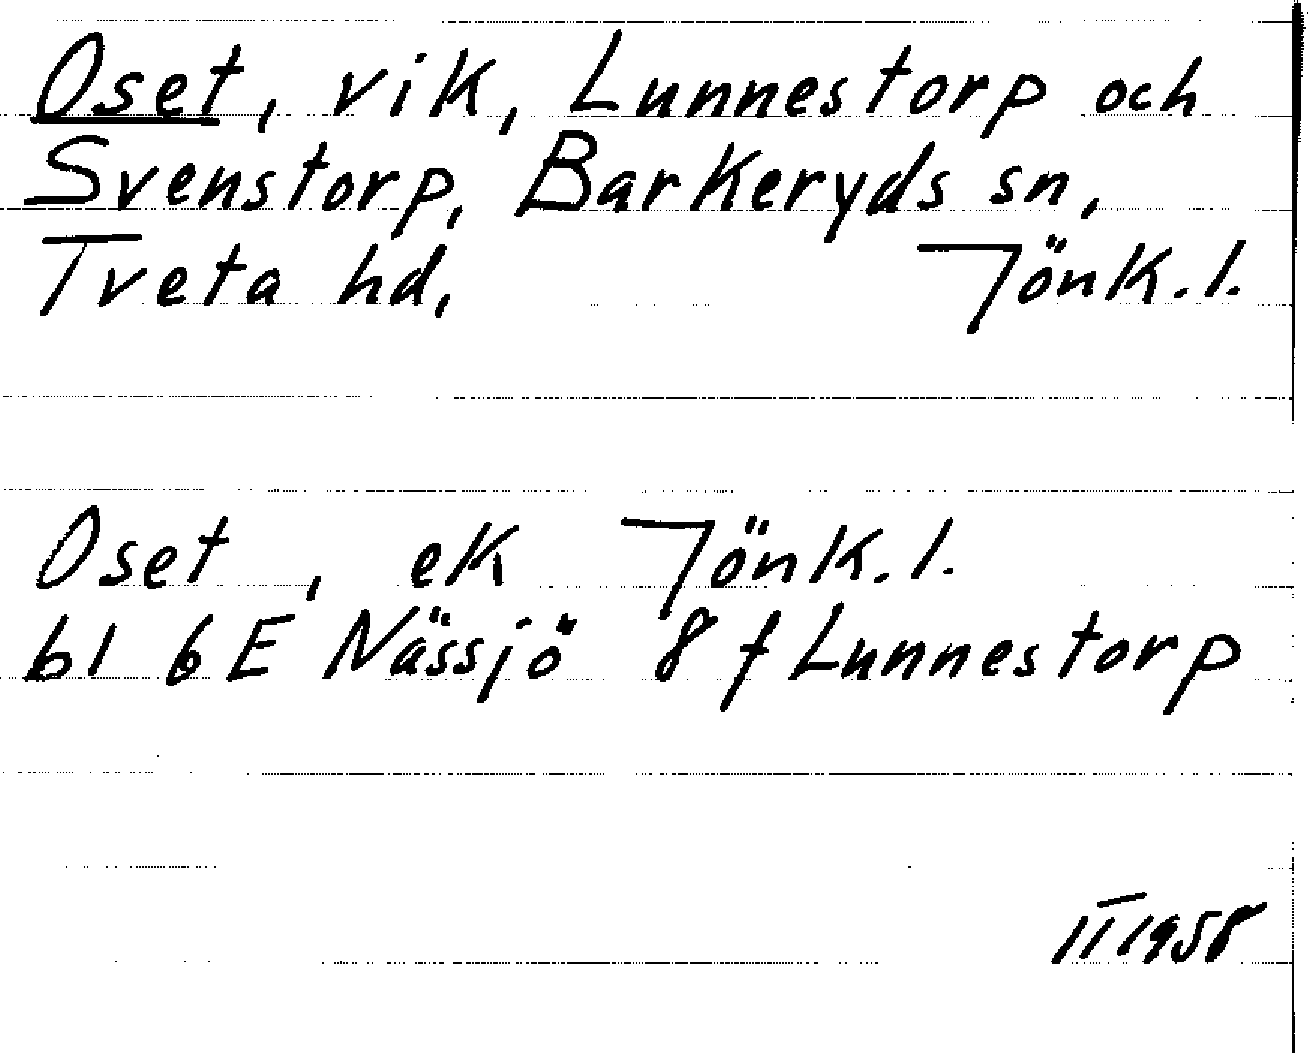 Oset, vik, Lunnestorp och
Svenstorp, Barkeryds sn,
Tveta hd, Jönk.l.
Oset, ek Jönk.l.
bl 6E Nässjö 8 f Lunnestorp
II 1958